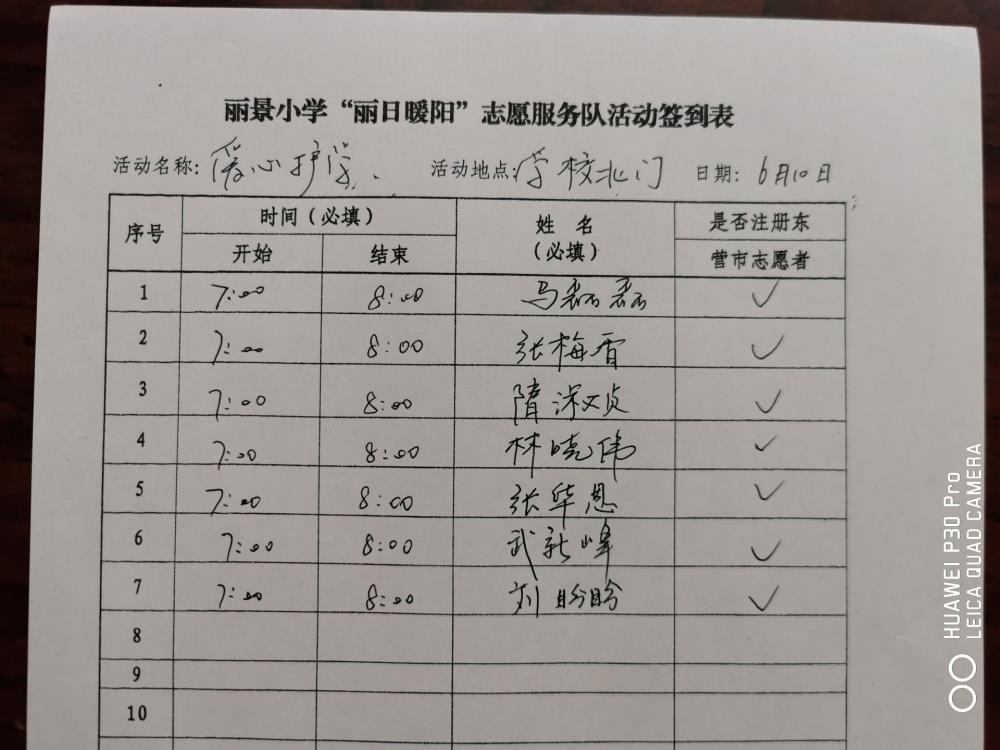 丽景小学“丽日暖阳”志愿服务队活动签到表
活动名称: 爱心护学 活动地点: 学校北门 日期: 6月10日
序号 时间(必填) 姓 名 (必填) 是否注册东营市志愿者
开始 结束
1 7:00 8:00 马磊磊 ✓
2 7:00 8:00 张梅香 ✓
3 7:00 8:00 隋 ✓
4 7:00 8:00 林晓伟 ✓
5 7:00 8:00 张华恩 ✓
6 7:00 8:00 武新峰 ✓
7 7:00 8:00 刘盼盼 ✓
8
9
10
HUAWEI P30 Pro
LEICA QUAD CAMERA